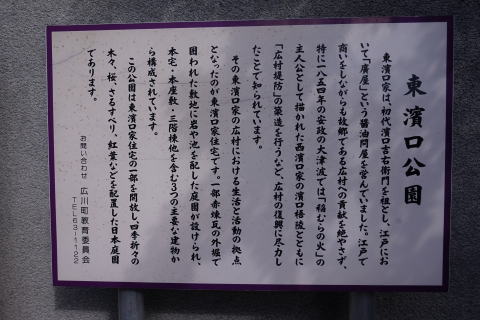 東濱口公園
東濱口家は、初代濱口吉右衛門を祖とし、江戸にお
いて「廣屋」という醤油問屋を営んでいました。江戸で
商いをしながらも故郷である広村への貢献を絶やさず、
特に一八五四年の安政の大津波では「稲むらの火」の
主人公として描かれた西濱口家の濱口梧陵とともに
「広村堤防」の築造を行うなど、広村の復興に尽力し
たことで知られています。
その東濱口家の広村における生活と活動の拠点
となったのが東濱口家住宅です。一部赤煉瓦の外塀で
囲われた敷地に岩や池を配した庭園が設けられ、
本宅・本座敷・三階棟他を含む3つの主要な建物か
ら構成されています。
この公園は東濱口家住宅の一部を開放し、四季折々の
木々、桜、さるすべり、紅葉などを配置した日本庭園
であります。
お問い合わせ 広川町教育委員会
TEL63-1122